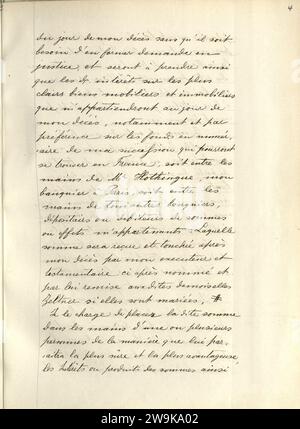 4
du jour de mon décès sans qu'il soit
besoin d'en former demande en
justice, et seront à prendre ainsi
que les dts intérêts sur les plus
clairs biens mobiliers et immobiliers
qui m'appartiendront au jour de
mon décès, notamment et par
préférence sur les fonds en numé-
raire de ma succession qui pourront
se trouver en France, soit entre les
mains de Mr Hottingue, mon
banquier à Paris, soit entre les
mains de banquiers,
dépositaires ou débiteurs de sommes
ou effets m'appartenants. Laquelle
somme sera reçue et touchée après
mon décès par mon exécuteur et
testamentaire ci après nommé et
par lui remise aux dites demoiselles
si elles sont mariées,
à le charge de placer la dite somme
dans les mains d'une ou plusieurs
personnes de la manière que lui par-
aitra la plus sûre et la plus avantageuse,
les intérêts ou produits des sommes ainsi
alamy
Image ID: 2W9KA02
www.alamy.com